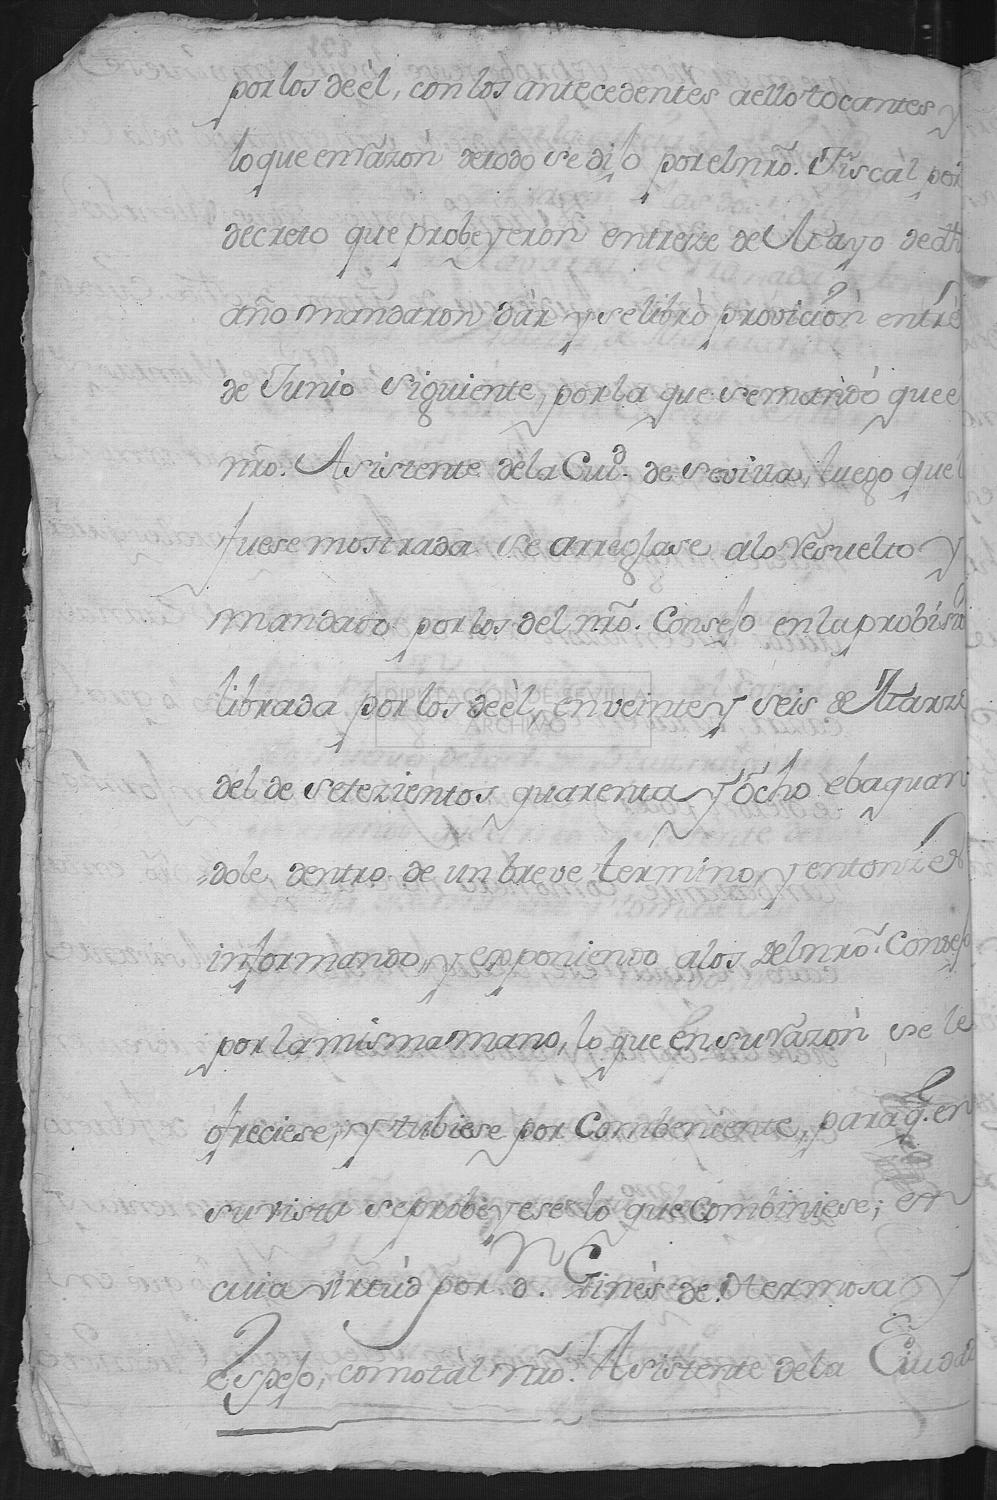 por los de èl, con los antecedentes aello tocantes y
lo que en razon detodo se dijo por el nrõ. Fiscal por
decreto que probeyeron entreze de Mayo de dh
año mandaron dàr y se libró provición en tre
de Junio siguiente, por la que se mandó que e
nrõ. Asistente de la Ciud. de Sevilla, luego quel
fuese mostrada se arreglase alo resuelto y
mandado por los del nrõ. Consejo en la probisn
librada por los de èl, en veinte y seis de Marzo
del de setezientos quarenta y ocho ebaquan
=dole dentro de un breve termino, y entonzes
informando, y exponiendo alos del nrõ. Consejo
por la misma mano, lo que en su razon se le
ofreciese, y tubiese por combeniente, para q. en
su vista se probeyese lo que combiniese; en
cuia virtúd por D. Ginès de Hermosa y
Espejo, como tal nrõ. Asistente de la Ciudad
DIPUTACIÓN DE SEVILLA
ARCHIVO